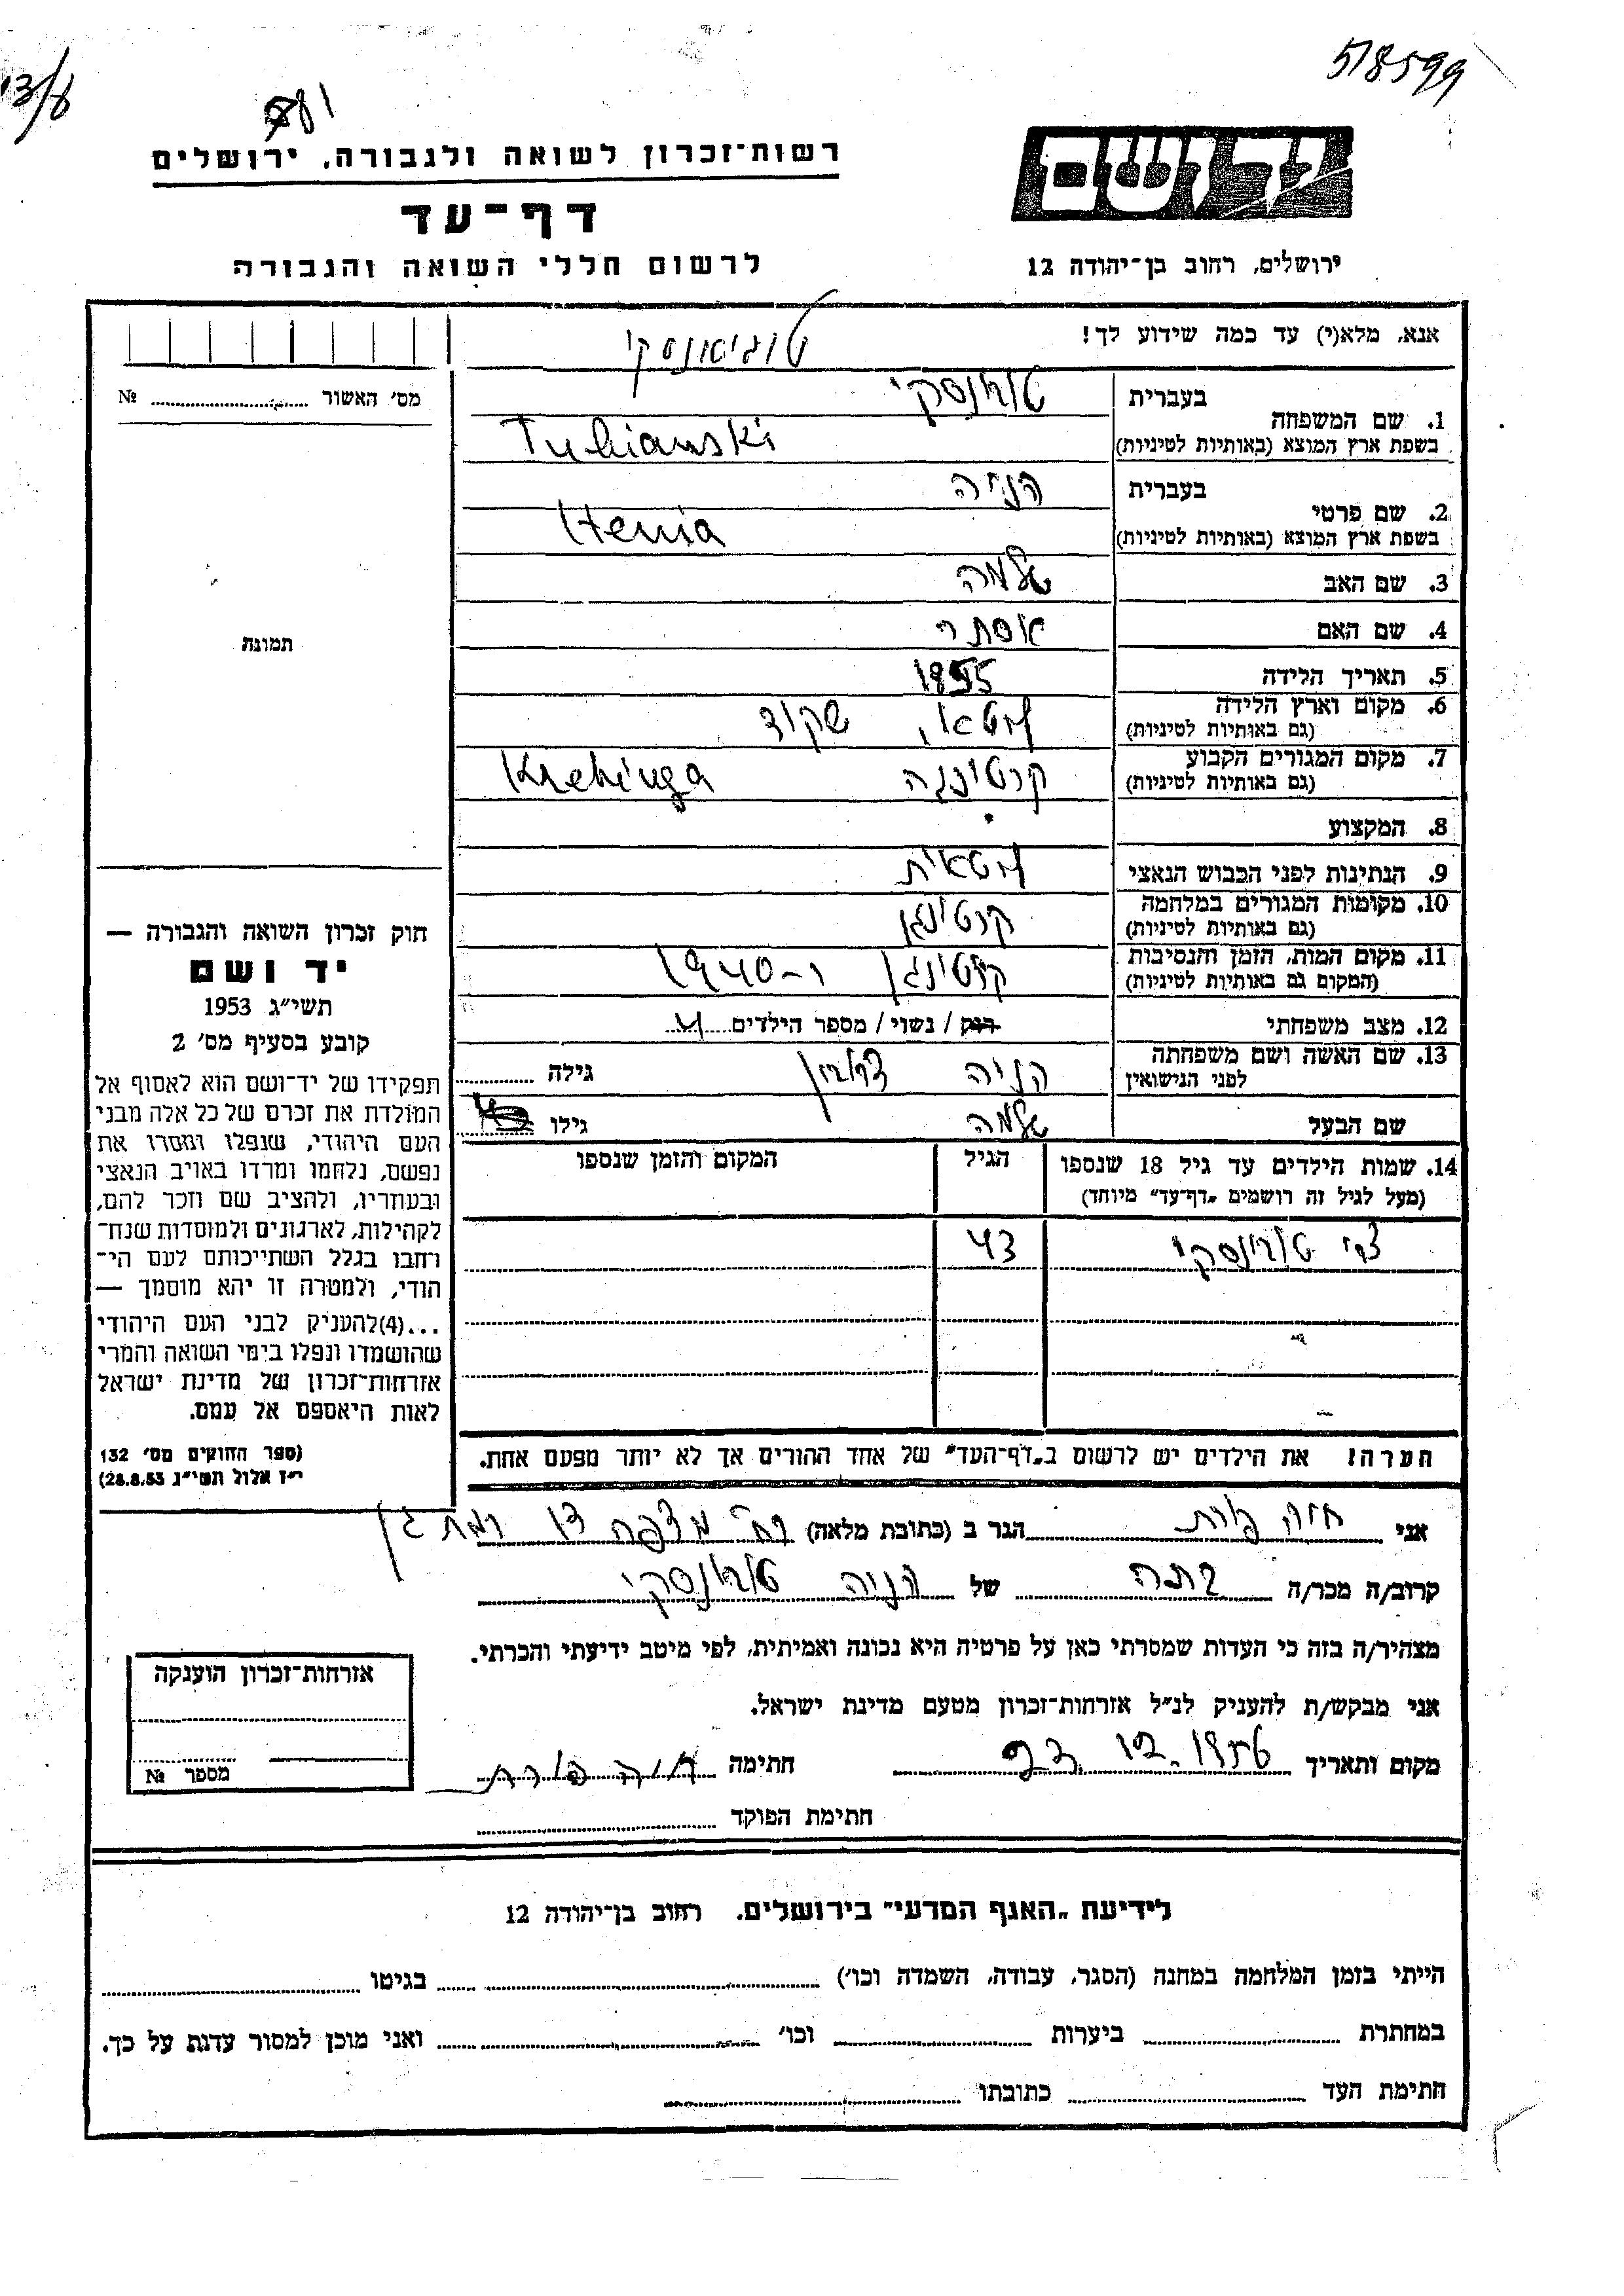 518599
13/8
781
יד ושם
רשות־זכרון לשואה ולגבורה, ירושלים
דף־עד
לרשום חללי השואה והגבורה
ירושלים, רחוב בן־יהודה 12
אנא, מלא(י) עד כמה שידוע לך!
טוביאנסקי
מס' האשור № ........
1. שם המשפחה בעברית טובינסקי
בשפת ארץ המוצא (באותיות לטיניות) Tubianski
2. שם פרטי בעברית הניה
בשפת ארץ המוצא (באותיות לטיניות) Henia
3. שם האב שלמה
4. שם האם אסתר
תמונת
5. תאריך הלידה 1895
6. מקום וארץ הלידה שקוד
(גם באותיות לטיניות)
7. מקום המגורים הקבוע קרטינגה Kretinga
(גם באותיות לטיניות)
8. המקצוע
9. הנתינות לפני הכבוש הנאצי ליטאית
10. מקומות המגורים במלחמה קרטינגן
(גם באותיות לטיניות)
11. מקום המות, הזמן והנסיבות קרטינגן ב-1940
(המקום גם באותיות לטיניות)
12. מצב משפחתי רווק / נשוי / מספר הילדים 4
13. שם האשה ושם משפחתה הניה גילה
לפני הנישואין
שם הבעל שלמה גילו
14. שמות הילדים עד גיל 18 שנספו הגיל המקום והזמן שנספו
(מעל לגיל זה רושמים „דף־עד" מיוחד)
צבי טובינסקי 43
הערה! את הילדים יש לרשום ב„דף־העד" של אחד ההורים אך לא יותר מפעם אחת.
חוק זכרון השואה והגבורה —
יד ושם
תשי"ג 1953
קובע בסעיף מס' 2
תפקידו של יד־ושם הוא לאסוף אל
המולדת את זכרם של כל אלה מבני
העם היהודי, שנפלו ומסרו את
נפשם, נלחמו ומרדו באויב הנאצי
ובעוזריו, ולהציב שם וזכר להם,
לקהילות, לארגונים ולמוסדות שנח־
רבו בגלל השתייכותם לעם הי־
הודי, ולמטרה זו יהא מוסמך —
...(4)להעניק לבני העם היהודי
שהושמדו ונפלו בימי השואה והמרי
אזרחות־זכרון של מדינת ישראל
לאות היאספם אל עמם.
(ספר החוקים מס' 132
י"ז אלול תשי"ג 28.8.53)
אני חוה פורת הגר ב (כתובת מלאה) רח' מצפה רמת גן
קרוב/ה מכר/ה בתה של הניה טובינסקי
מצהיר/ה בזה כי העדות שמסרתי כאן על פרטיה היא נכונה ואמיתית, לפי מיטב ידיעתי והכרתי.
אני מבקש/ת להעניק לנ"ל אזרחות־זכרון מטעם מדינת ישראל.
מקום ותאריך 1956 חתימה חוה פורת
חתימת הפוקד
אזרחות־זכרון הוענקה
מספר №
לידיעת „האגף המדעי" בירושלים, רחוב בן־יהודה 12
הייתי בזמן המלחמה במחנה (הסגר, עבודה, השמדה וכו') בגיטו
במחתרת ביערות וכו' ואני מוכן למסור עדות על כך.
חתימת העד כתובתו